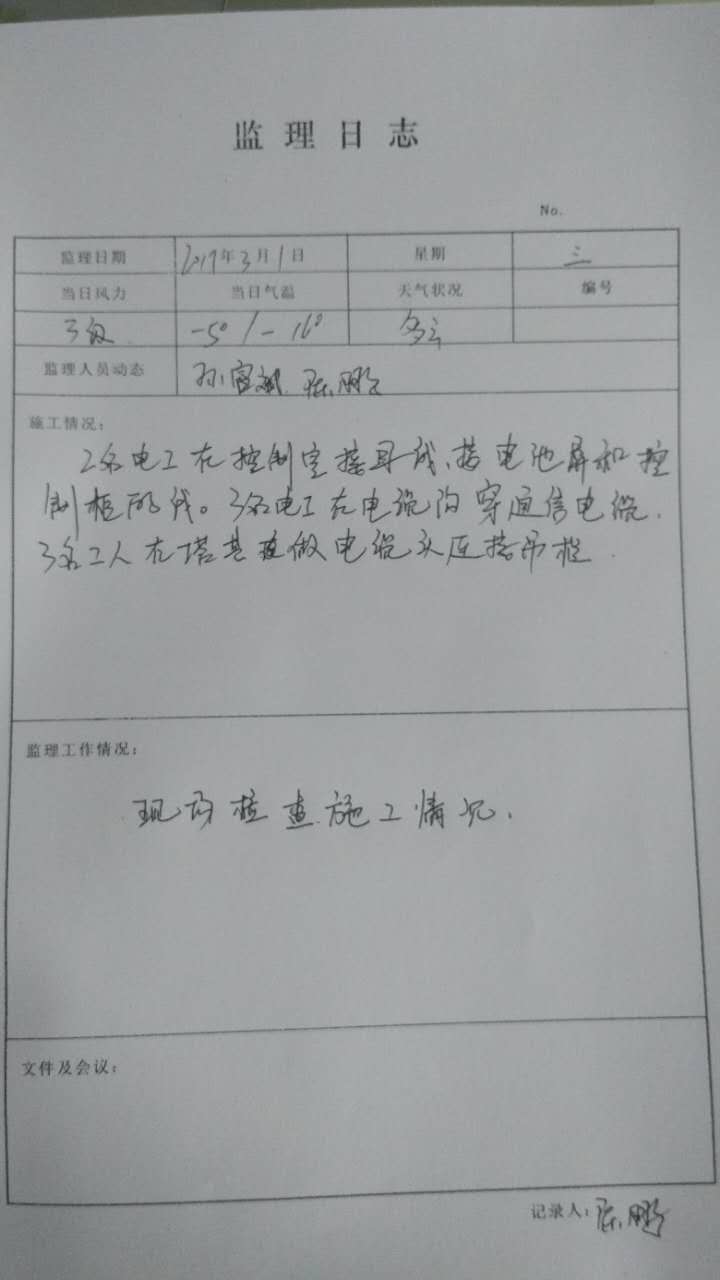 监理日志
No.
监理日期 2017年3月1日 星期 三
当日风力 当日气温 天气状况 编号
3级 -5° / -16° 多云
监理人员动态 孙 陈鹏
施工情况：
2名电工在控制室接导线、接电池屏和控
制柜的线。3名电工在电缆沟穿通信电缆.
3名工人在塔基做电缆头连接
监理工作情况：
现场检查施工情况.
文件及会议：
记录人：陈鹏